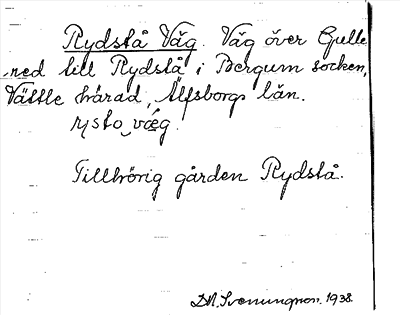 Rydstå Väg. Väg över Gulle
ned till Rydstå i Bergum socken,
Vättle härad, Älfsborgs län.
Tillhörig gården Rydstå.
1938.